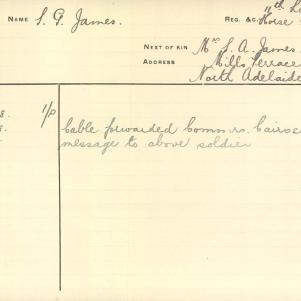 NAME S. G. James.
REG. &C. 11th L
Horse
NEXT OF KIN Mrs S. A. James
ADDRESS Mills Terrace
North Adelaide
8. 1/P Cable forwarded Comm rs. Cairo c
8. message to above soldier